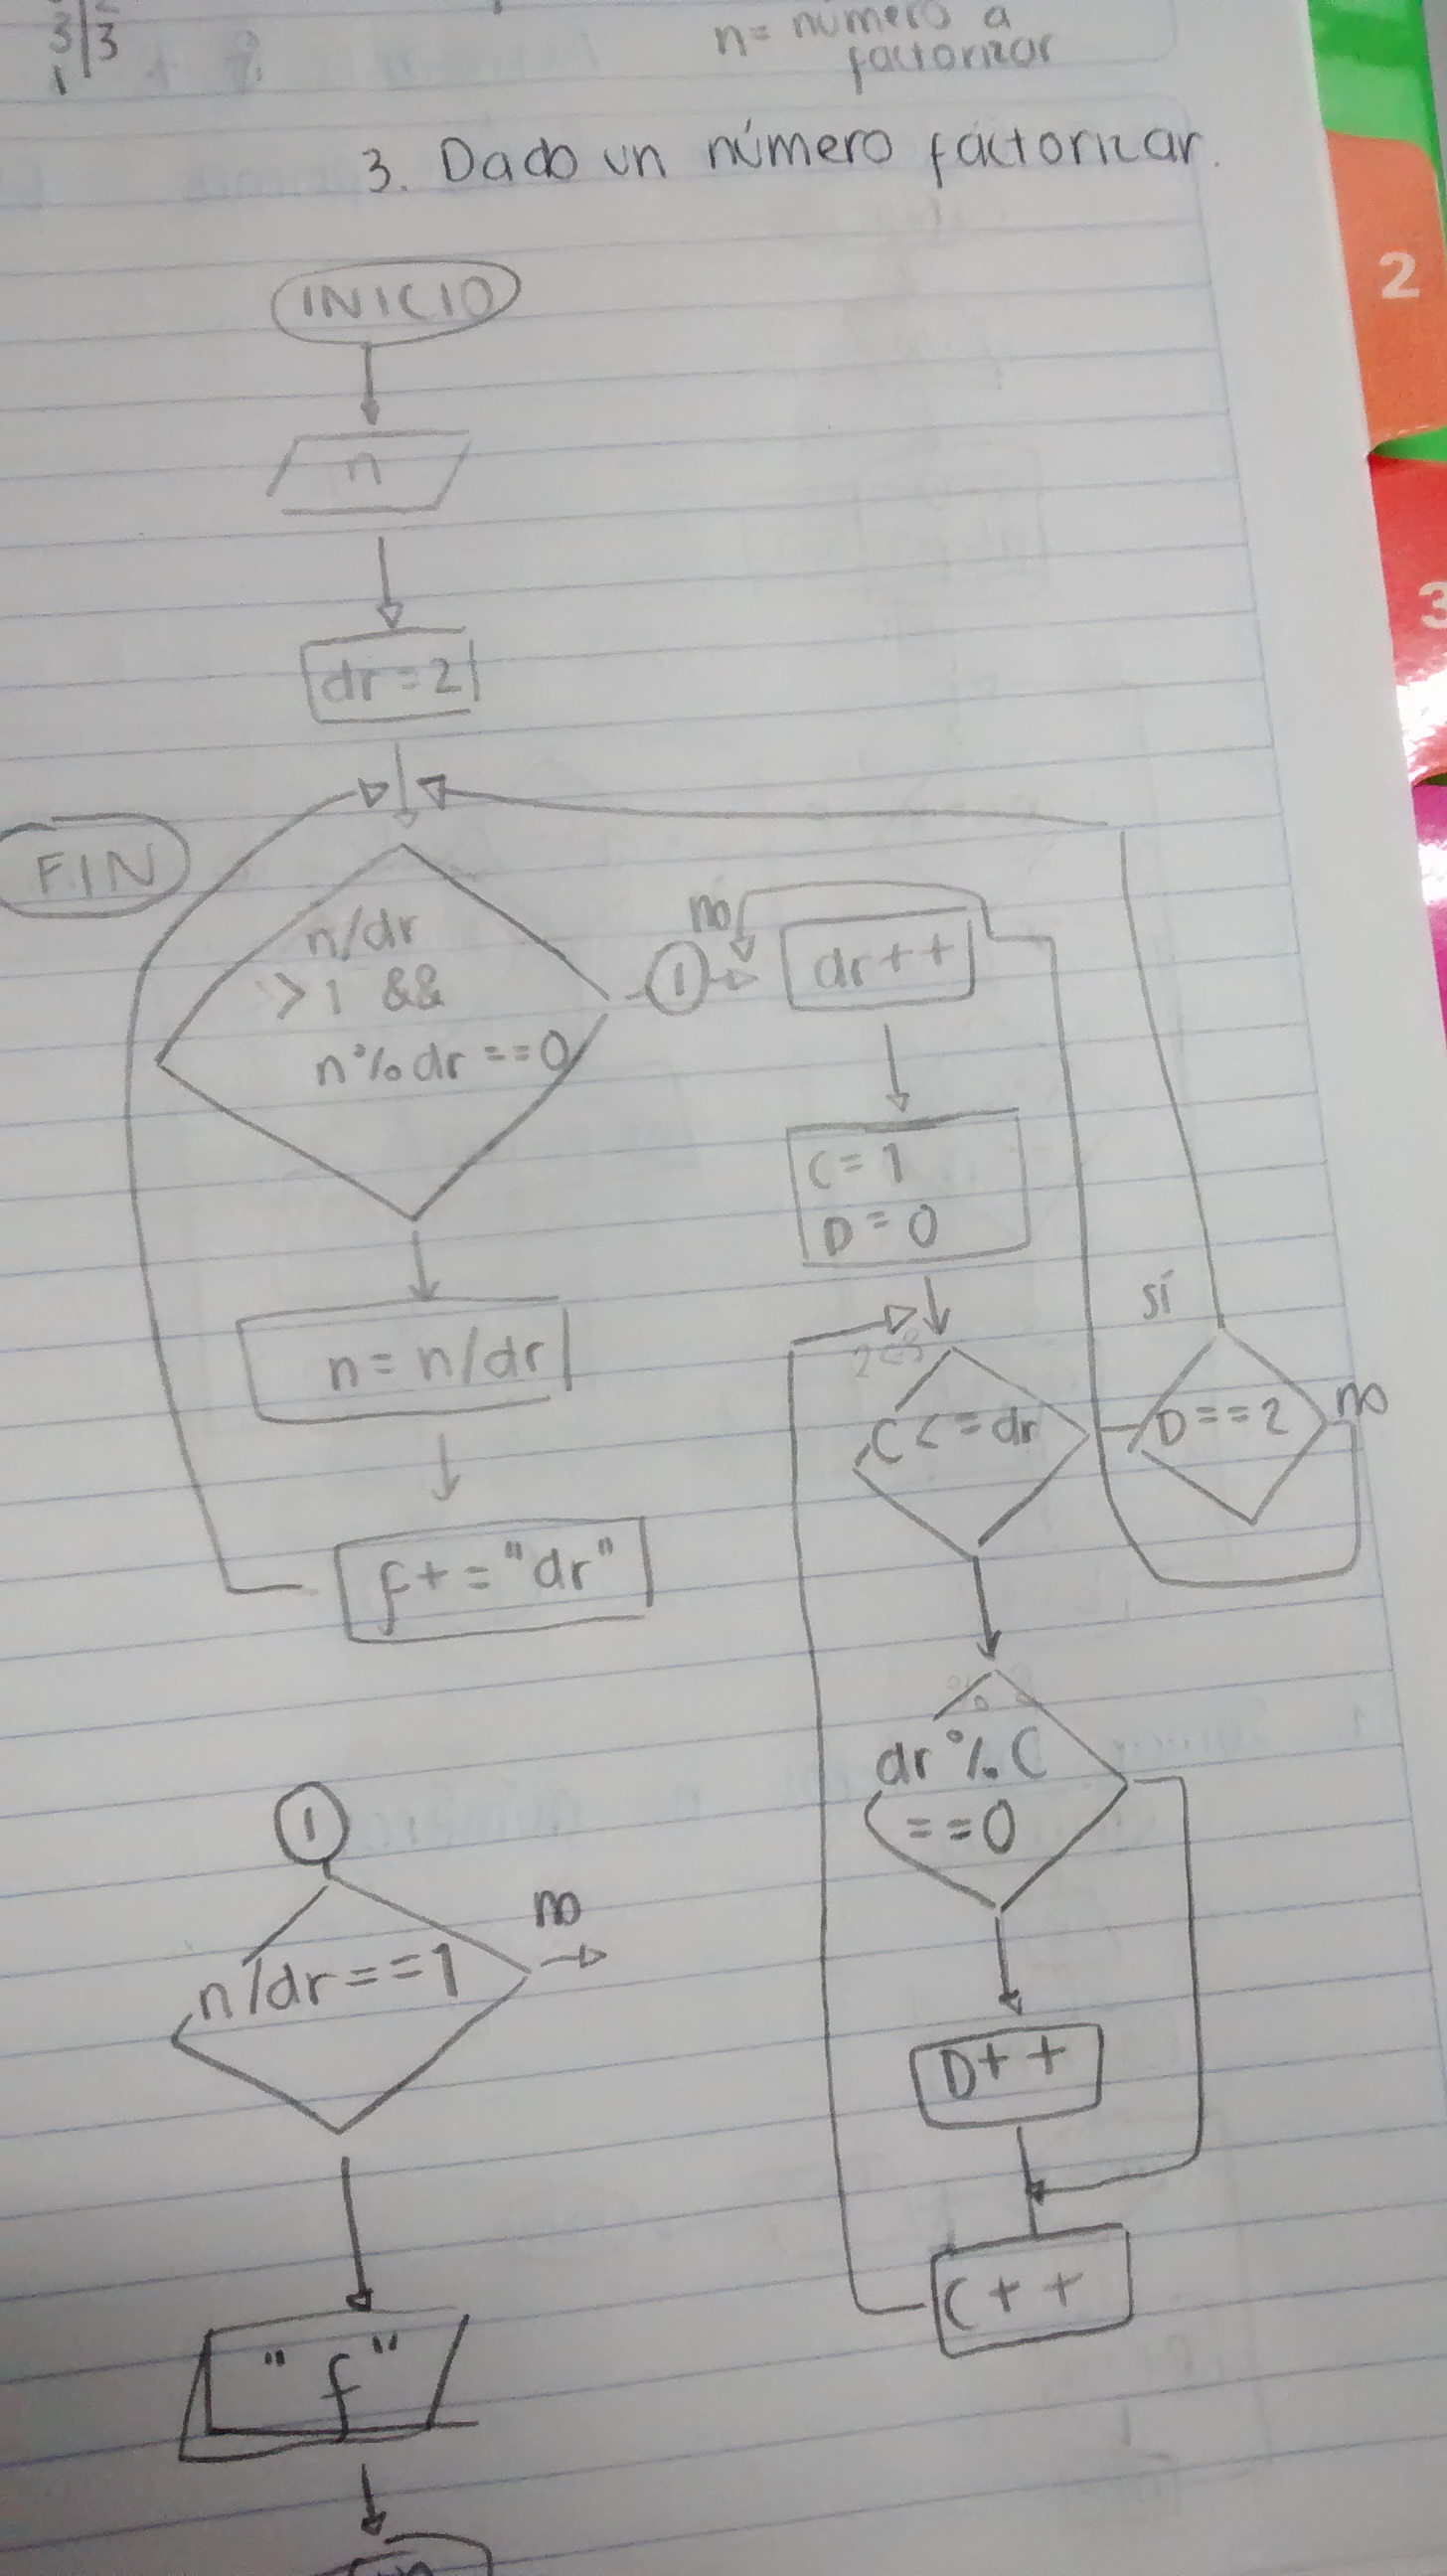 3|3
1
n= número a
factorizar
3. Dado un número factorizar.
2
3
INICIO
n
dr=2
FIN
n/dr
>1 &&
n%dr==0
1
no
dr++
C=1
D=0
n=n/dr
f+="dr"
C<=dr
sí
D==2
no
dr%C
==0
D++
C++
1
n/dr==1
no
"f"